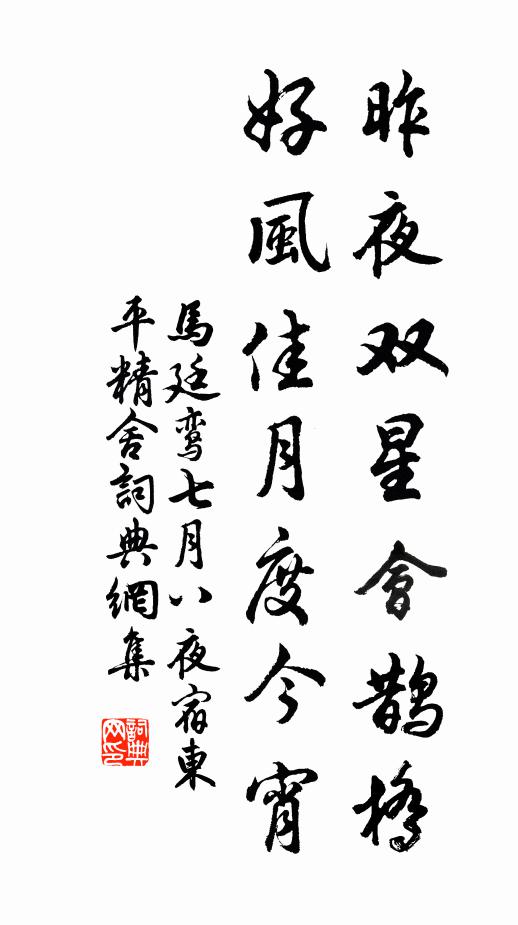 昨夜双星會鹊橋
好風佳月度今宵
馬廷鸾七月八夜宿東
平精舍詞典網集
詞典
网印